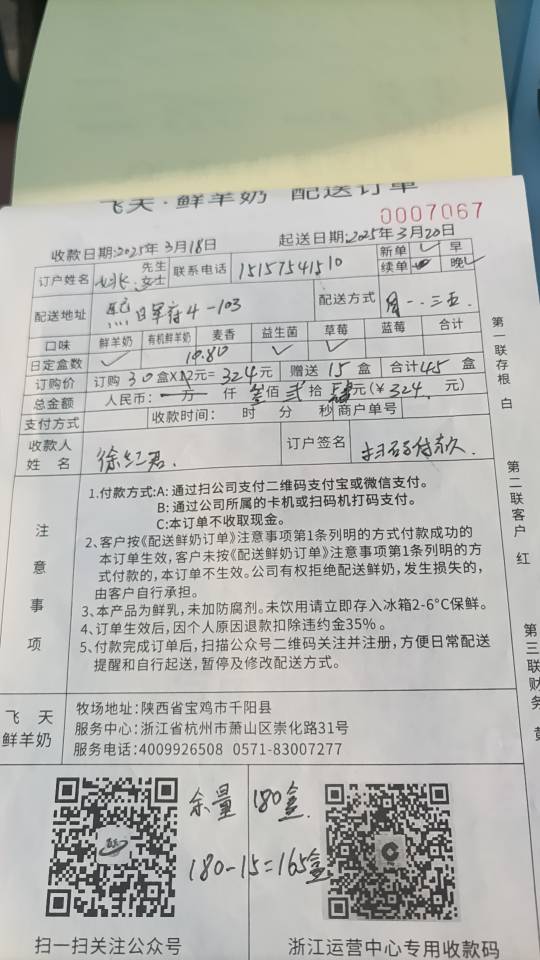 飞天·鲜羊奶 配送订单
0007067
收款日期:2025年3月18日 起送日期:2025年3月20日
订户姓名 姚 先生 女士 联系电话 15157541510 新单 ✓ 早
续单 晚 ✓
配送地址 4-103 配送方式 周一.三.五.
口味 鲜羊奶 有机鲜羊奶 麦香 益生菌 草莓 蓝莓 合计
日定盒数 ✓ ✓ ✓
10.80
订购价 订购 30 盒X12元= 324元 赠送 15 盒 合计45 盒
总金额 人民币: 万 仟 叁佰 贰 拾 肆元(￥324 元)
支付方式 收款时间: 时 分 秒 商户单号
收款人 姓名 徐红君. 订户签名 扫码付款
注意事项
1.付款方式:A: 通过扫公司支付二维码支付宝或微信支付。
B: 通过公司所属的卡机或扫码机打码支付。
C:本订单不收取现金。
2、客户按《配送鲜奶订单》注意事项第1条列明的方式付款成功的
本订单生效，客户未按《配送鲜奶订单》注意事项第1条列明的方
式付款的，本订单不生效。公司有权拒绝配送鲜奶，发生损失的，
由客户自行承担。
3、本产品为鲜乳，未加防腐剂。未饮用请立即存入冰箱2-6°C保鲜。
4、订单生效后，因个人原因退款扣除违约金35% 。
5、付款完成订单后，扫描公众号二维码关注并注册，方便日常配送
提醒和自行起送，暂停及修改配送方式。
飞天
鲜羊奶
牧场地址:陕西省宝鸡市千阳县
服务中心:浙江省杭州市萧山区崇化路31号
服务电话:4009926508 0571-83007277
余量 180盒.
180-15=165盒
扫一扫关注公众号 浙江运营中心专用收款码
第一联存根 白
第二联客户 红
第三联财务 黄